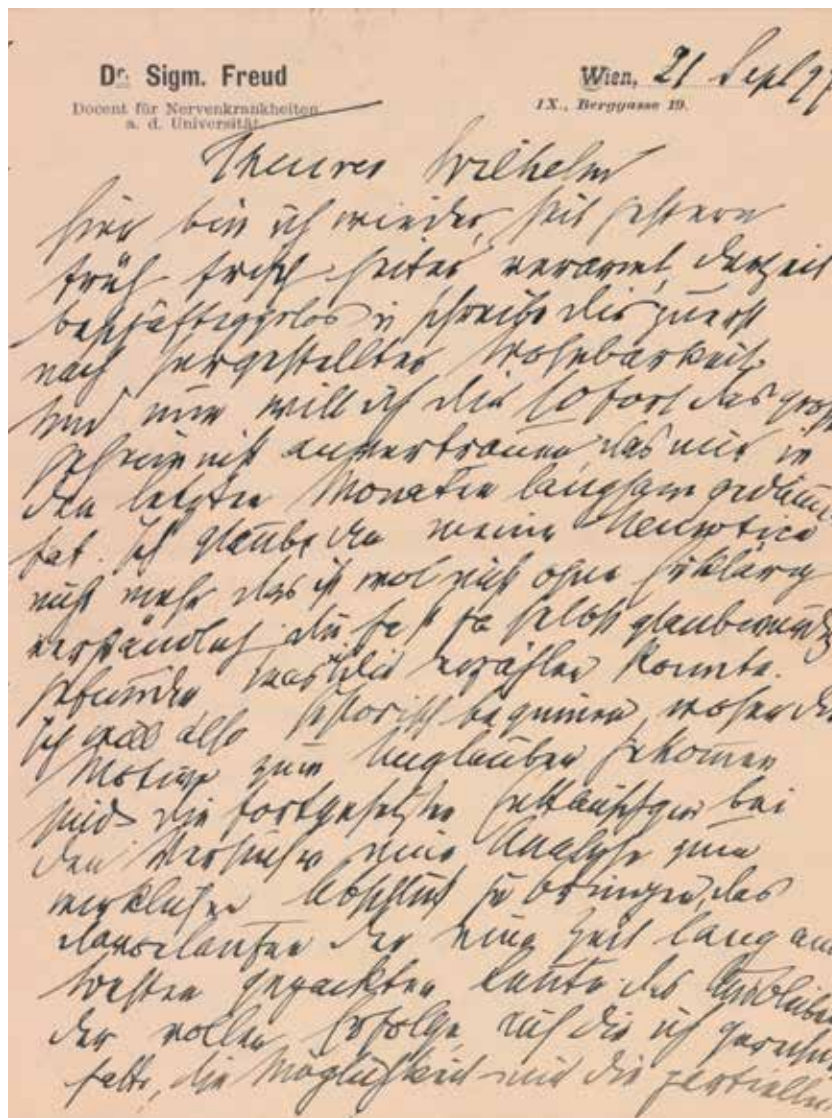 Dr. Sigm. Freud
Docent für Nervenkrankheiten
a. d. Universität.
Wien, 21 Sept 97
IX., Berggasse 19.
Theurer Wilhelm
Hier bin ich wieder, seit gestern
früh frisch heiter verarmt, derzeit
beschäftiggslos u schreibe dir zuerst
nach hergestellter Wohnbarkeit.
Und nun will ich dir sofort das große
Geheimniß anvertrauen das mir in
den letzten Monaten langsam gedämmert
hat. Ich glaube an meine Neurotica
nicht mehr das ist wol nicht ohne Erklärg
verständlich du hast ja selbst glaubwürdig
gefunden was ich dir erzählen konnte.
Ich will also historisch beginnen, woher die
Motive zum Unglauben gekommen
sind. Die fortgesetzten Enttäuschgen bei
den Versuchen eine Analyse zum
wirklichen Abschluß zu bringen, das
davonlaufen der eine Zeit lang am
besten gepackten Leute das Ausbleiben
der vollen Erfolge auf die ich gerechnet
hatte, die Möglichkeit mir die partiellen